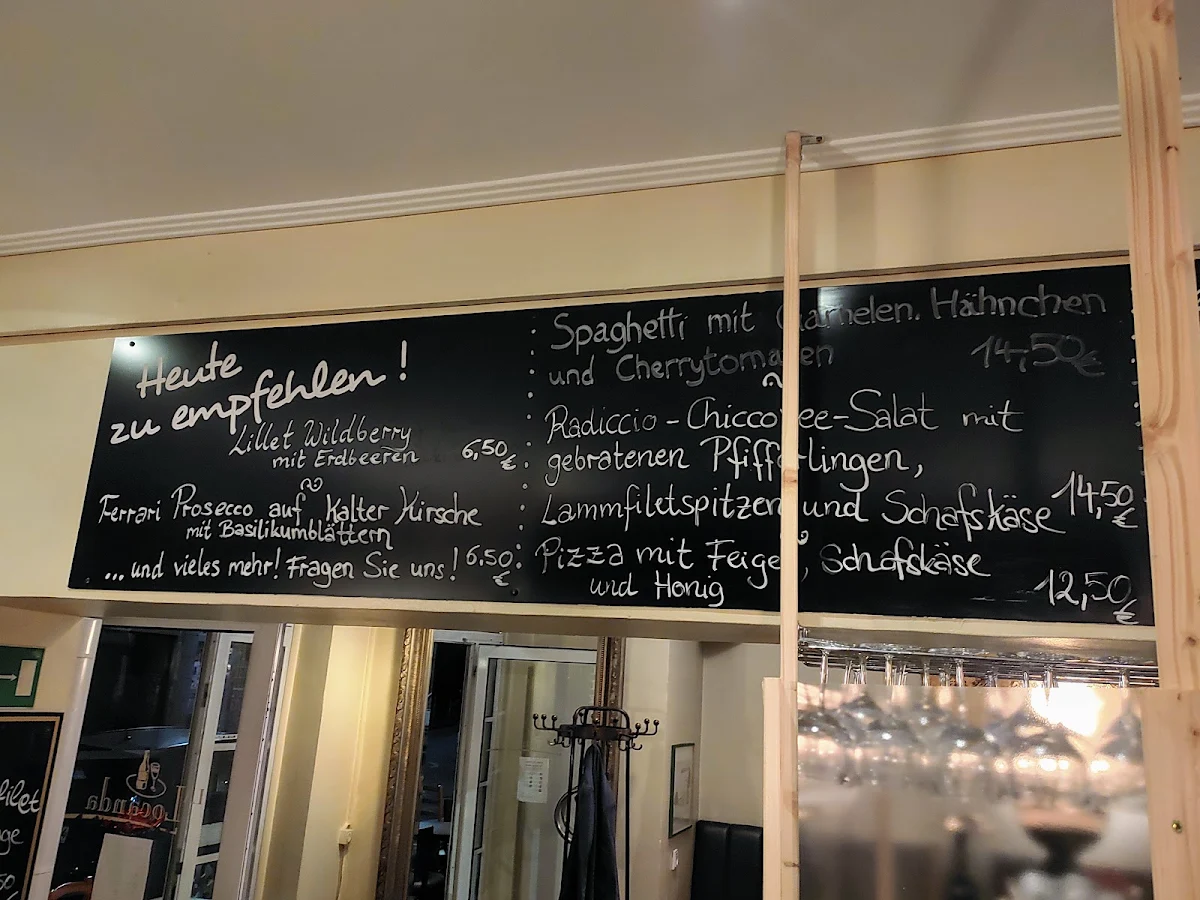 Heute
zu empfehlen!
Lillet Wildberry
mit Erdbeeren 6,50 €
Ferrari Prosecco auf Kalter Kirsche
mit Basilikumblättern
...und vieles mehr! Fragen Sie uns! 6.50 €
Spaghetti mit Garnelen. Hähnchen
und Cherrytomaten 14,50 €
Radiccio-Chiccoree-Salat mit
gebratenen Pfifferlingen,
Lammfiletspitzen und Schafskäse 14,50 €
Pizza mit Feigen, Schafskäse
und Honig 12,50 €
Locanda
filet